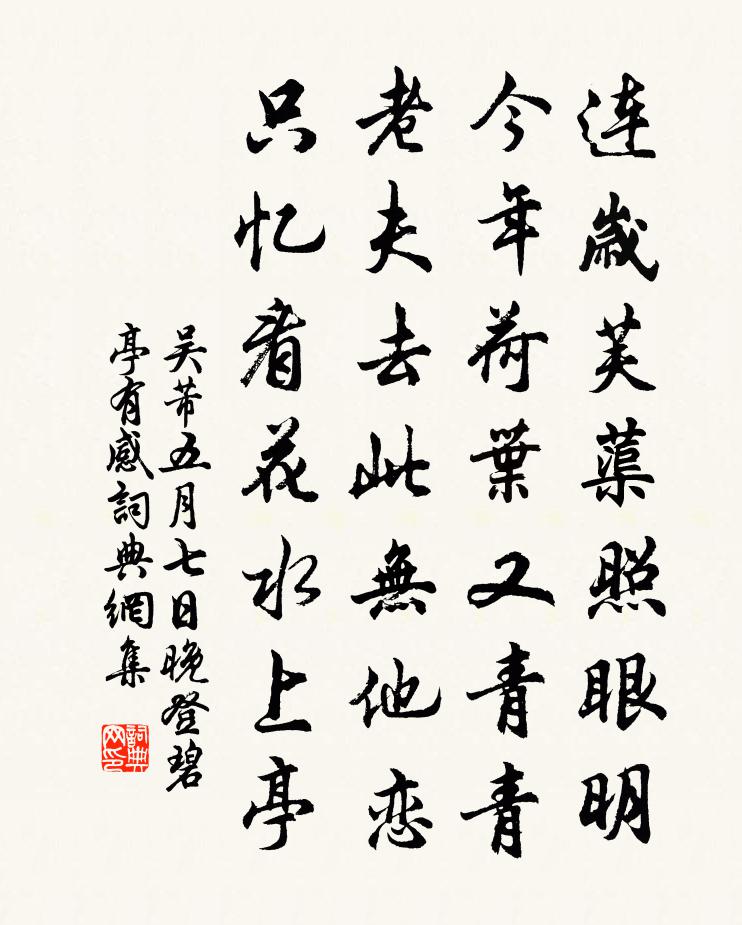 连歲芙蕖照眼明
今年荷葉又青青
老夫去此無他恋
只忆看花水上亭
吴芾五月七日晚登碧
亭有感詞典網集
詞典
网印